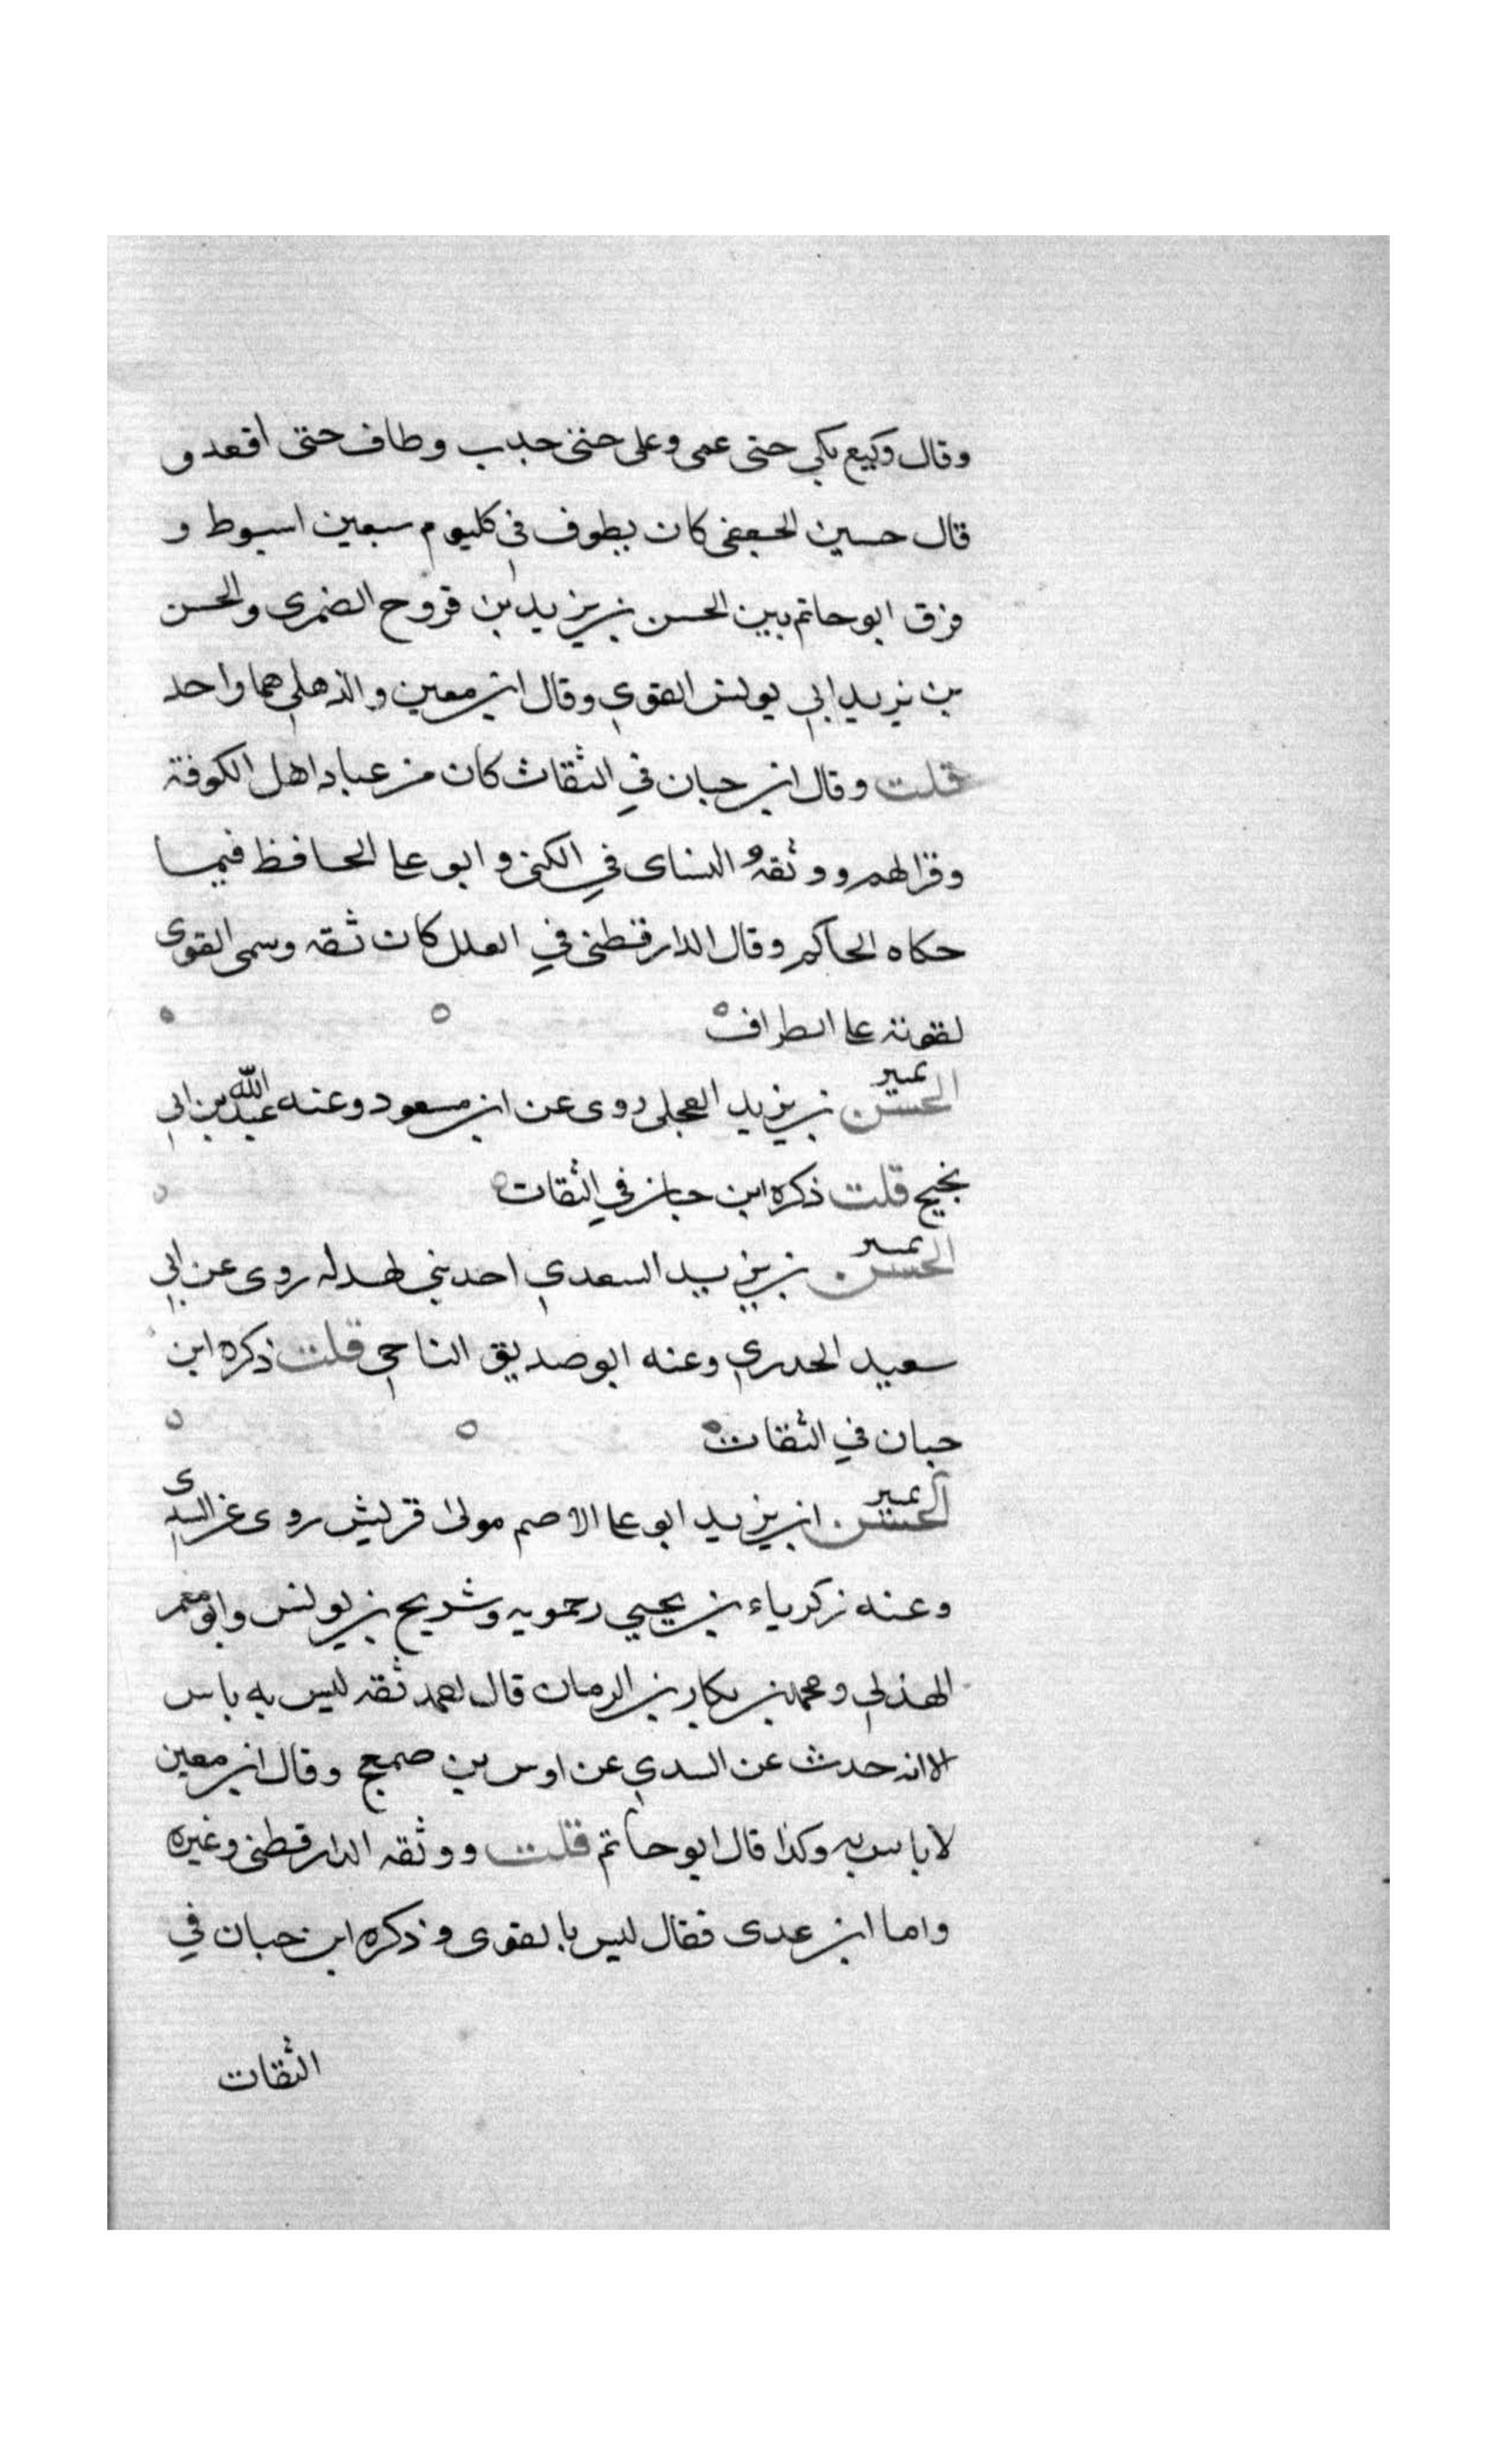 وقال وكيع بكى حتى عمى وعلى حتى حدب وطاف حتى اقعد و
قال حسين الجعفى كان يطوف فى كليوم سبعين اسبوط و
فرق ابو حاتم بين الحسن بن يزيد بن فروح الضمرى والحسن
بن يزيد ابي يونس القوي وقال ابن معين والذهلي هما واحد
قلت وقال ابن حبان في الثقات كان من عباد اهل الكوفة
وقرالهم ووثقه النساى في الكنى وابو عا الحافظ فيما
حكاه الحاكم وقال الدارقطنى في العلل كان ثقه وسمى القوى
لقوته عا الطراف
الحسن تمييز بن يزيد العجلى روى عن ابن مسعود وعنه عبد الله بن ابى
نجيح قلت ذكره ابن حبان في الثقات
الحسن تمييز بن يزيد السعدي احد بني لهدله روى عن ابي
سعيد الخدري وعنه ابو صديق الناجي قلت ذكره ابن
حبان في الثقات
الحسن تمييز ابن يزيد ابو عا الاصم مولى قريش روى عن السدى
وعنه زكرياء بن يحيي رحمويه وشريح بن يونس وابو معمر
الهذلي ومحمد بن بكار بن الرمان قال احمد ثقه ليس به باس
الا انه حدث عن السدي عن اوس بن صمعج وقال ابن معين
لا باس به وكذا قال ابو حاتم قلت ووثقه الدارقطنى وغيره
واما ابن عدى فقال ليس بالقوى وذكره ابن حبان في
الثقات